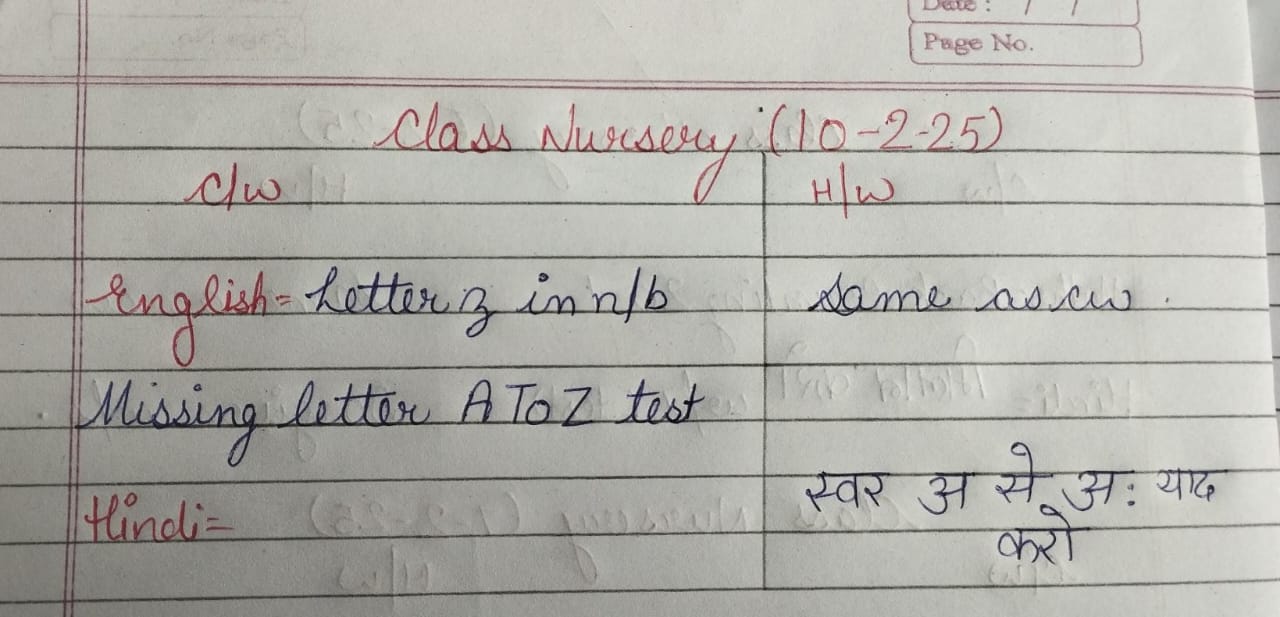 Date : / /
Page No.
Class Nursery (10-2-25)
C/W H/W
English = Letter z in n/b same as cw.
Missing letter A To Z test
Hindi = स्वर अ से अः याद
करो